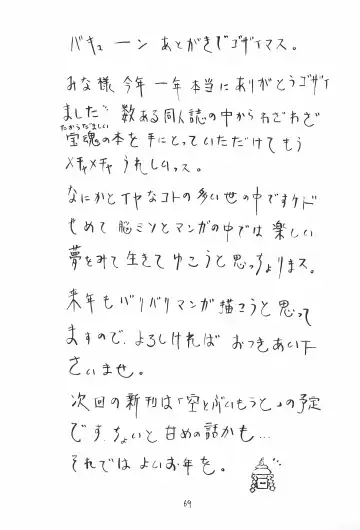 バキューン あとがきでゴザイマス。
みな様、今年一年本当にありがとうゴザイ
ました。数ある同人誌の中からわざわざ
たからだましい
宝魂の本を手にとっていただけてもう
メチャメチャうれしいっス。
なにかとイヤなコトの多い世の中ですケド
せめて脳ミソとマンガの中では楽しい
夢をみて生きてゆこうと思っちょりまス。
来年もバリバリマンガ描こうと思って
ますので、よろしければおつきあい下
さいませ。
次回の新刊は「空とぶいもうと」の予定
です。ちょいと甘めの話かも…
それではよいお年を。
69